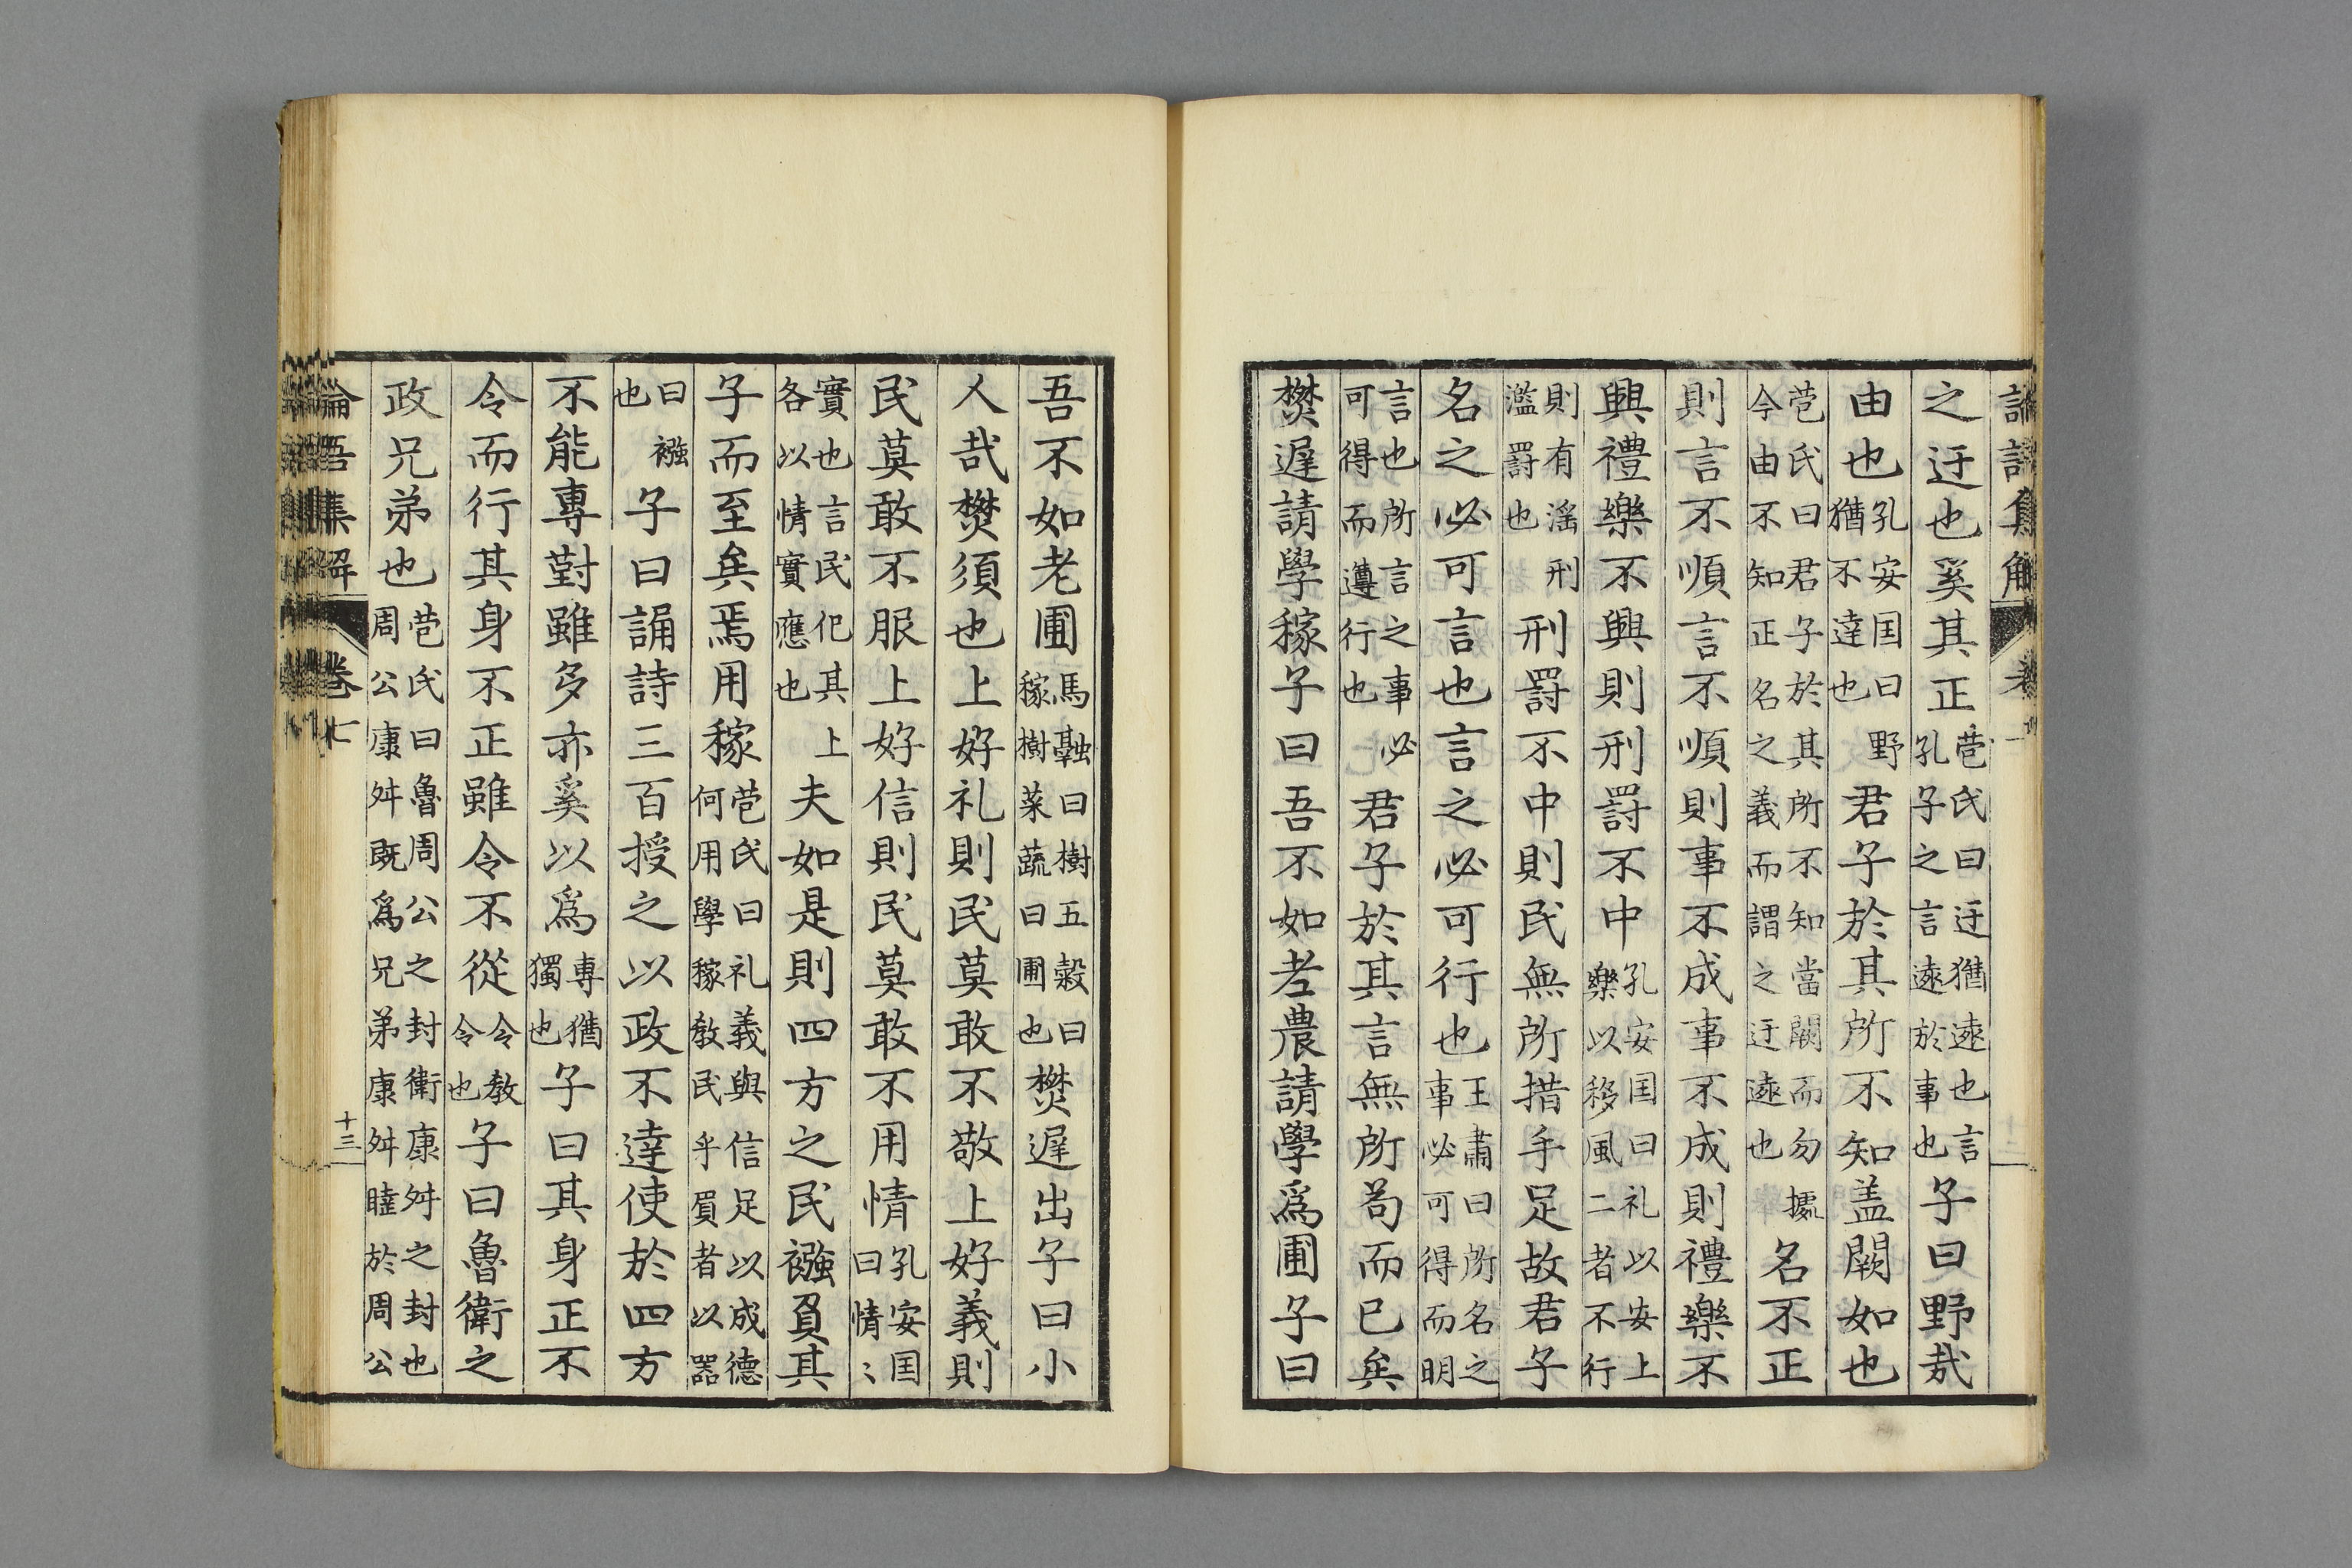 之迂也奚其正苞氏曰迂猶遠也言孔子之言遠於事也子曰野哉
由也孔安国曰野猶不達也君子於其所不知盖闕如也
苞氏曰君子於其所不知當闕而勿據今由不知正名之義而謂之迂遠也名不正
則言不順言不順則事不成事不成則禮樂不
興禮樂不興則刑罸不中孔安国曰礼以安上樂以移風二者不行
則有滛刑濫罸也刑罸不中則民無所措手足故君子
名之必可言也言之必可行也王肅曰所名之事必可得而明
言也所言之事必可得而遵行也君子於其言無所苟而已矣
樊遲請學稼子曰吾不如老農請學爲圃子曰
吾不如老圃馬融曰樹五穀曰稼樹菜蔬曰圃也樊遲出子曰小
人哉樊須也上好礼則民莫敢不敬上好義則
民莫敢不服上好信則民莫敢不用情孔安国曰情〻
實也言民化其上各以情實應也夫如是則四方之民襁負其
子而至矣焉用稼苞氏曰礼義與信足以成德何用學稼敎民乎負者以器
曰襁也子曰誦詩三百授之以政不達使於四方
不能專對雖多亦奚以爲專猶獨也子曰其身正不
令而行其身不正雖令不從令敎令也子曰魯衛之
政兄弟也苞氏曰魯周公之封衛康叔之封也周公康叔既爲兄弟康叔睦於周公
論吾集解 卷七 十三